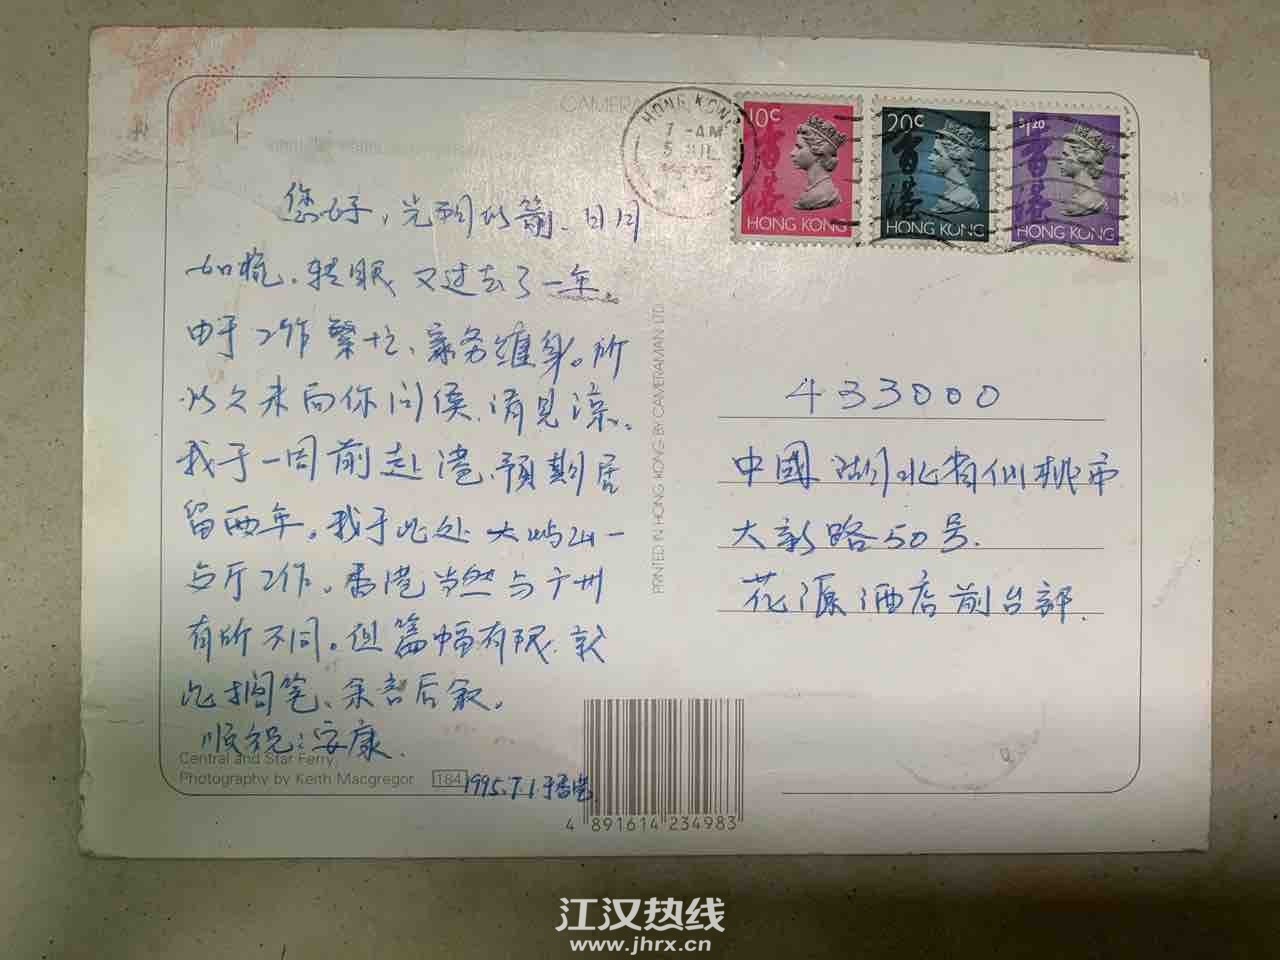 CAMERAMAN
HONG KONG
7 - AM
5 JUL
1995
10c
香港
HONG KONG
20c
香港
HONG KONG
$1.20
香港
HONG KONG
您好，光阴似箭、日月
如梭、转眼又过去了一年。
由于工作繁忙、家务缠身。所
以久未向你问侯、请见凉。
我于一周前赴港、预期居
留两年。我于此处大屿山一
与厅工作。香港当然与广州
有所不同。但篇幅有限、就
此搁笔、余言后叙。
顺祝：安康.
1995.7.1.于香港
433000
中國湖北省仙桃市
大新路50号.
花源酒店前台部.
PRINTED IN HONG KONG BY CAMERAMAN LTD.
Central and Star Ferry
Photography by Keith Macgregor 184
4 891614 234983
江汉热线
www.jhrx.cn